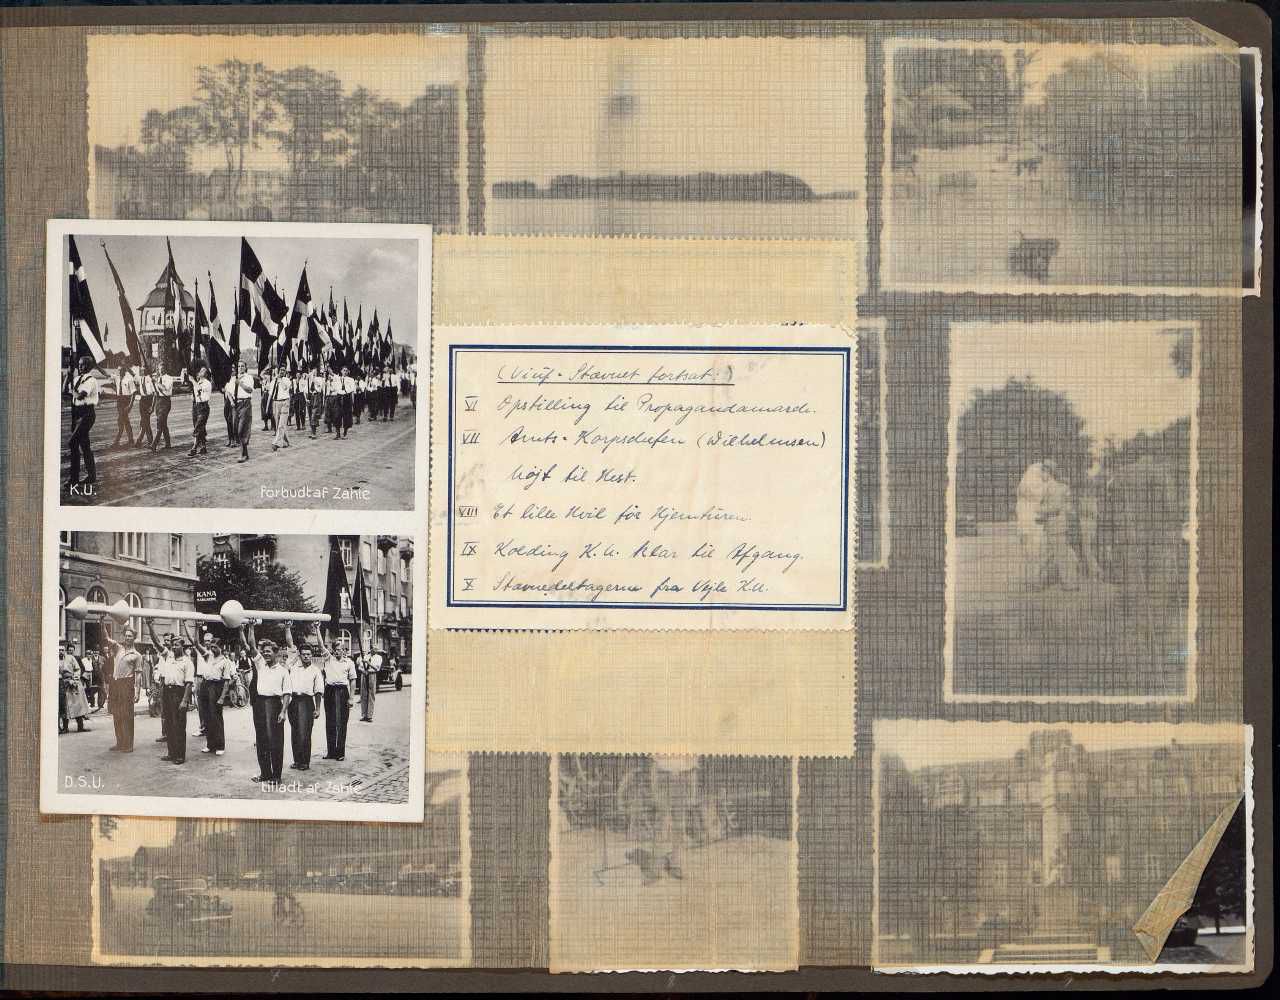 K.U.
Forbudt af Zahle
KANA
MARGARINE
D.S.U.
tilladt af Zahle
(Viuf-Stævnet fortsat:)
VI Opstilling til Propagandamarch.
VII Amts-Korpschefen (Wilhelmsen)
højt til Hest.
VIII Et lille Hvil før Hjemturen.
IX Kolding K.U. klar til Afgang.
X Stævnedeltagerne fra Vejle K.U.